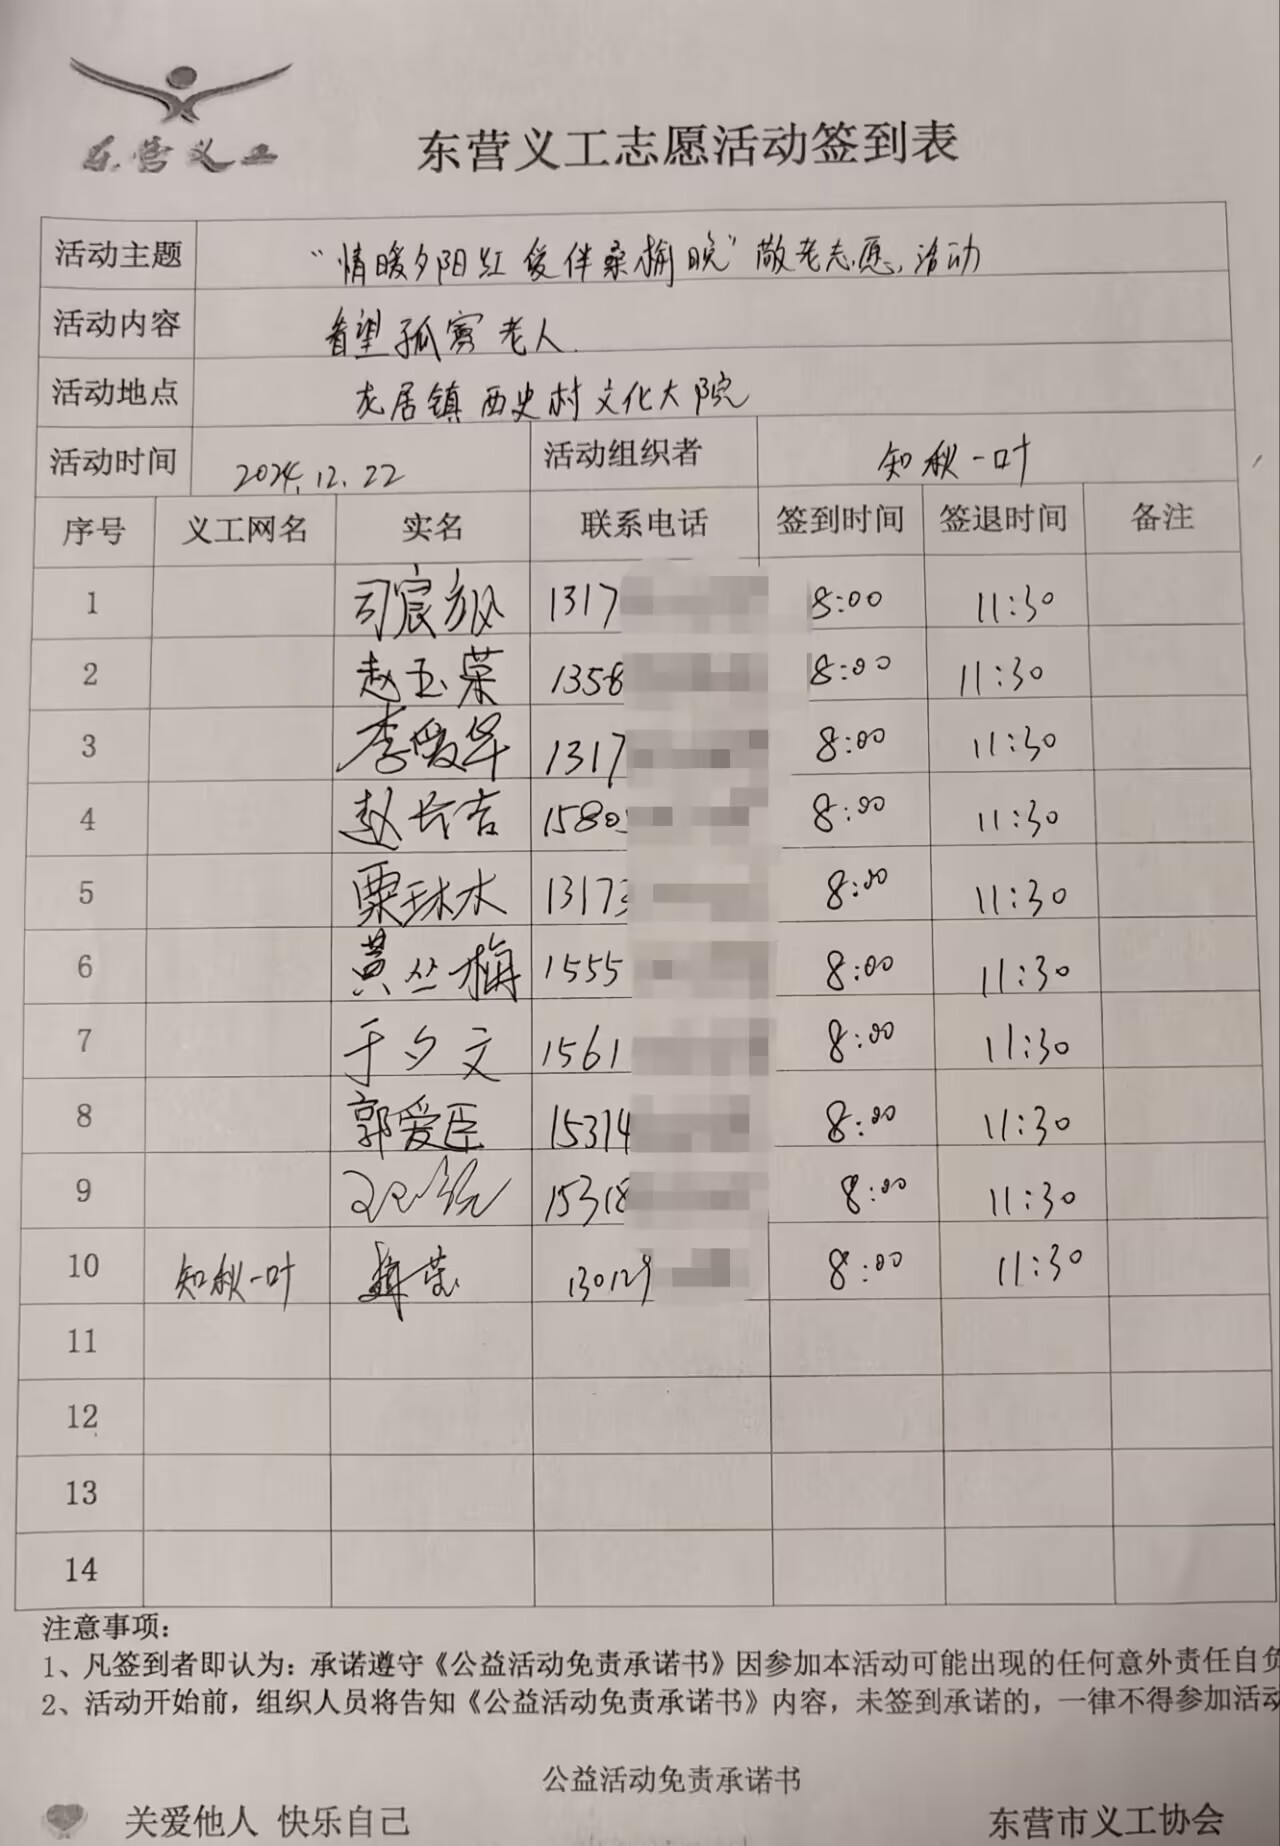 东营义工
东营义工志愿活动签到表
活动主题 “情暖夕阳红 爱伴桑榆晚”敬老志愿活动
活动内容 看望孤寡老人
活动地点 龙居镇西史村文化大院
活动时间 2024.12.22 活动组织者 知秋一叶
序号 义工网名 实名 联系电话 签到时间 签退时间 备注
1 司宸 1317 8:00 11:30
2 赵玉荣 1358 8:00 11:30
3 李爱华 1317 8:00 11:30
4 赵长吉 1580 8:00 11:30
5 栗琳水 1317 8:00 11:30
6 黄丛梅 1555 8:00 11:30
7 于夕文 1561 8:00 11:30
8 郭爱臣 15314 8:00 11:30
9 15318 8:00 11:30
10 知秋一叶 130129 8:00 11:30
11
12
13
14
注意事项:
1、凡签到者即认为:承诺遵守《公益活动免责承诺书》因参加本活动可能出现的任何意外责任自负
2、活动开始前，组织人员将告知《公益活动免责承诺书》内容，未签到承诺的，一律不得参加活动
公益活动免责承诺书
关爱他人 快乐自己 东营市义工协会